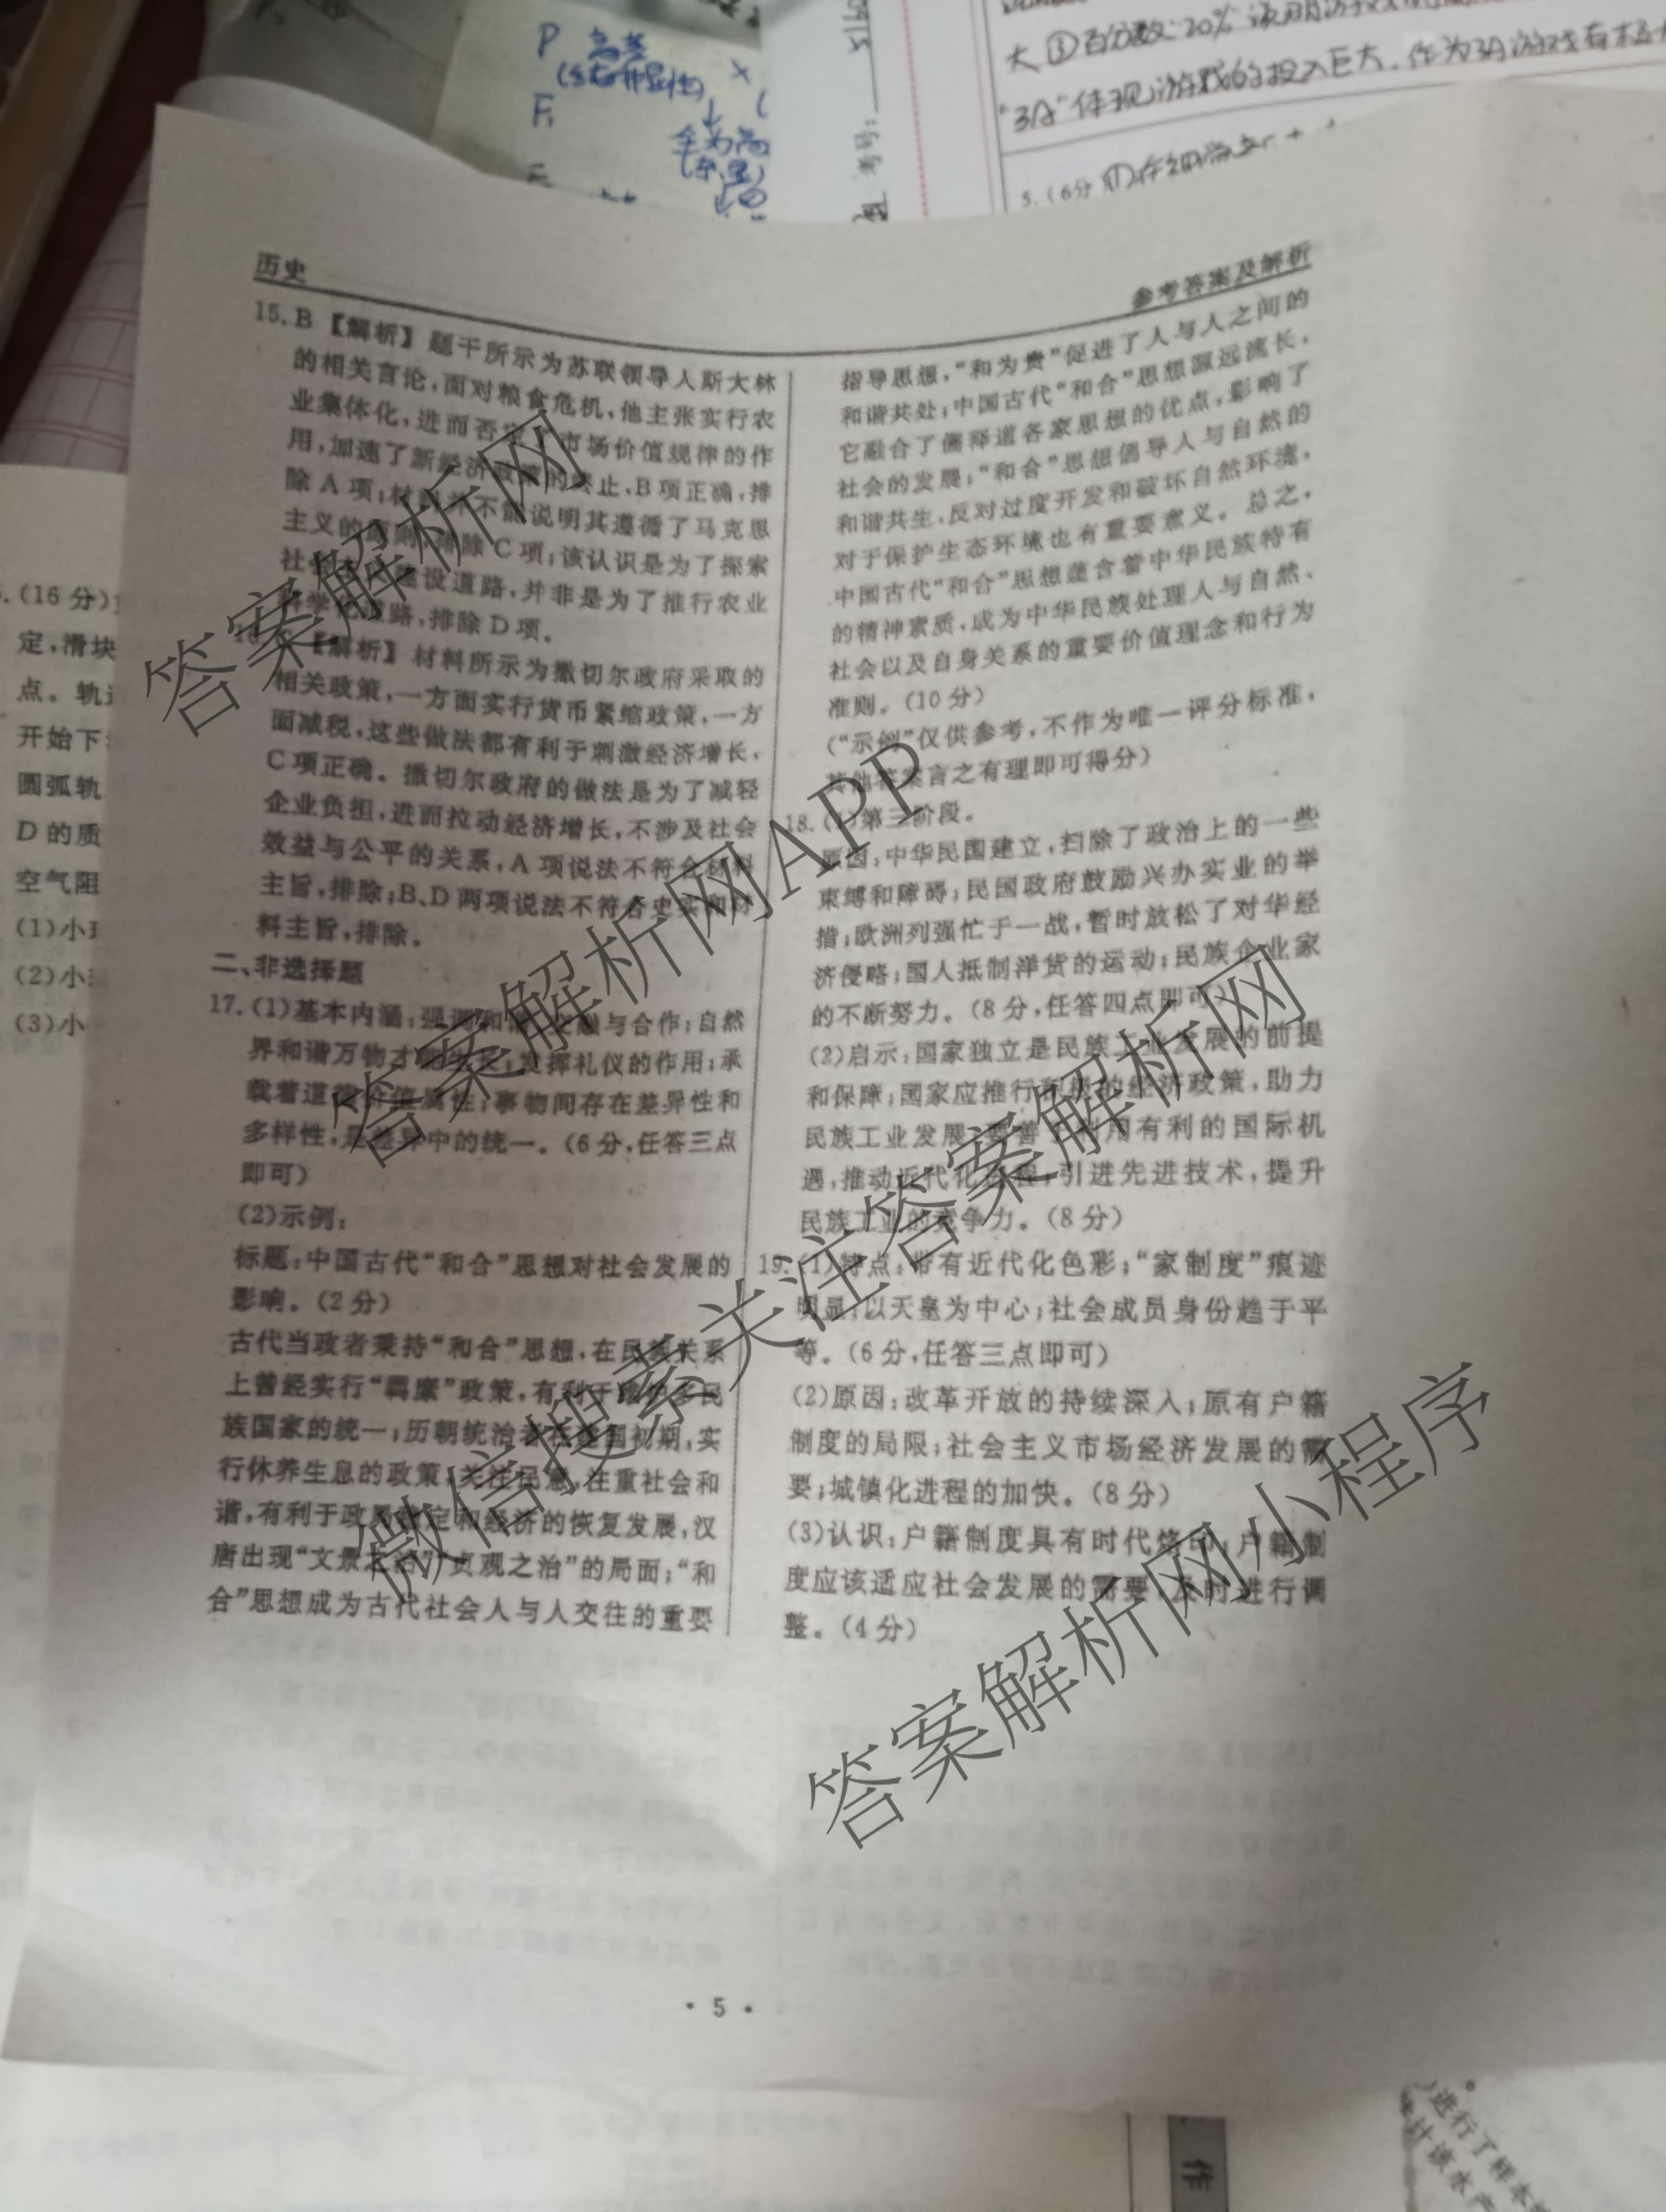 P 高茎
F₁
考号:
大③百分数"20%"
"3A"体现游戏的投入巨大,作为3A游戏有
5.(6分
历史
参考答案及解析
15. B 【解析】题干所示为苏联领导人斯大林
的相关言论,面对粮食危机,他主张实行农
业集体化,进而否定 市场价值规律的作
用,加速了新经济政策的终止,B项正确,排
除A项;材料并不能说明其遵循了马克思
主义的原则,排除C项;该认识是为了探索
社 建设道路,并非是为了推行农业
科学 道路,排除D项。
【解析】材料所示为撒切尔政府采取的
相关政策,一方面实行货币紧缩政策,一方
面减税,这些做法都有利于刺激经济增长,
C项正确。撒切尔政府的做法是为了减轻
企业负担,进而拉动经济增长,不涉及社会
效益与公平的关系,A项说法不符合材料
主旨,排除;B、D两项说法不符合史实和材
料主旨,排除。
二、非选择题
17.(1)基本内涵:强调和谐 与合作;自然
界和谐万物才 ;发挥礼仪的作用;承
载着道德价值属性;事物间存在差异性和
多样性,是差异中的统一。(6分,任答三点
即可)
(2)示例:
标题:中国古代“和合”思想对社会发展的
影响。(2分)
古代当政者秉持“和合”思想,在民族关系
上曾经实行“羁縻”政策,有利于维护多民
族国家的统一;历朝统治者在建国初期,实
行休养生息的政策,关注民意,注重社会和
谐,有利于政局稳定和经济的恢复发展,汉
唐出现“文景之治”“贞观之治”的局面;“和
合”思想成为古代社会人与人交往的重要
指导思想,“和为贵”促进了人与人之间的
和谐共处;中国古代“和合”思想源远流长,
它融合了儒释道各家思想的优点,影响了
社会的发展;“和合”思想倡导人与自然的
和谐共生,反对过度开发和破坏自然环境,
对于保护生态环境也有重要意义。总之,
中国古代“和合”思想蕴含着中华民族特有
的精神素质,成为中华民族处理人与自然、
社会以及自身关系的重要价值理念和行为
准则。(10分)
(“示例”仅供参考,不作为唯一评分标准,
其他答案言之有理即可得分)
18.(1)第三阶段。
原因:中华民国建立,扫除了政治上的一些
束缚和障碍;民国政府鼓励兴办实业的举
措;欧洲列强忙于一战,暂时放松了对华经
济侵略;国人抵制洋货的运动;民族企业家
的不断努力。(8分,任答四点即可)
(2)启示:国家独立是民族工业发展的前提
和保障;国家应推行积极的经济政策,助力
民族工业发展;要善于利用有利的国际机
遇,推动近代化进程;引进先进技术,提升
民族工业的竞争力。(8分)
19.(1)特点:带有近代化色彩;“家制度”痕迹
明显;以天皇为中心;社会成员身份趋于平
等。(6分,任答三点即可)
(2)原因:改革开放的持续深入;原有户籍
制度的局限;社会主义市场经济发展的需
要;城镇化进程的加快。(8分)
(3)认识:户籍制度具有时代烙印;户籍制
度应该适应社会发展的需要,及时进行调
整。(4分)
• 5 •
(16分)
定,滑块
点。轨
开始下
圆弧轨
D的质
空气阻
(1)小
(2)小
(3)小
答案解析网
答案解析网APP
微信搜索关注答案解析网
答案解析网小程序
作
进行了样本
计该水产